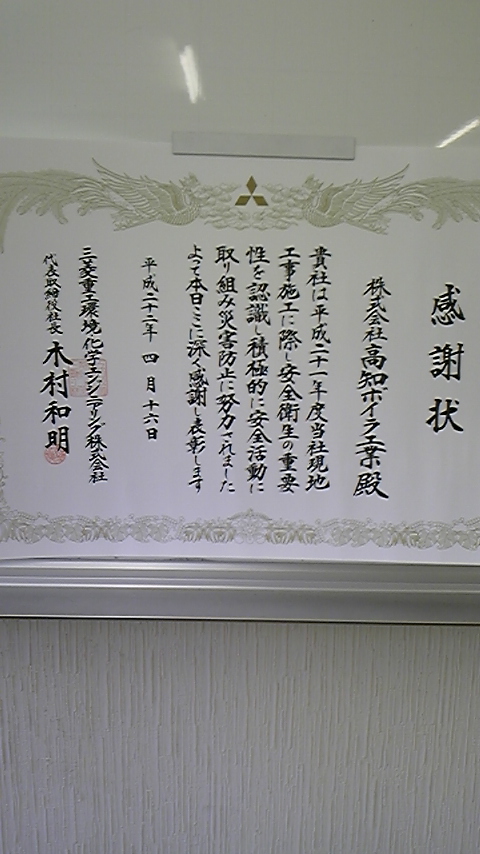 感謝状
株式会社高知ボイラ工業殿
貴社は平成二十一年度当社現地
工事施工に際し安全衛生の重要
性を認識し積極的に安全活動に
取り組み災害防止に努力されました
よって本日ここに深く感謝し表彰します
平成二十二年四月十六日
三菱重工環境・化学エンジニアリング株式会社
代表取締役社長 木村和明